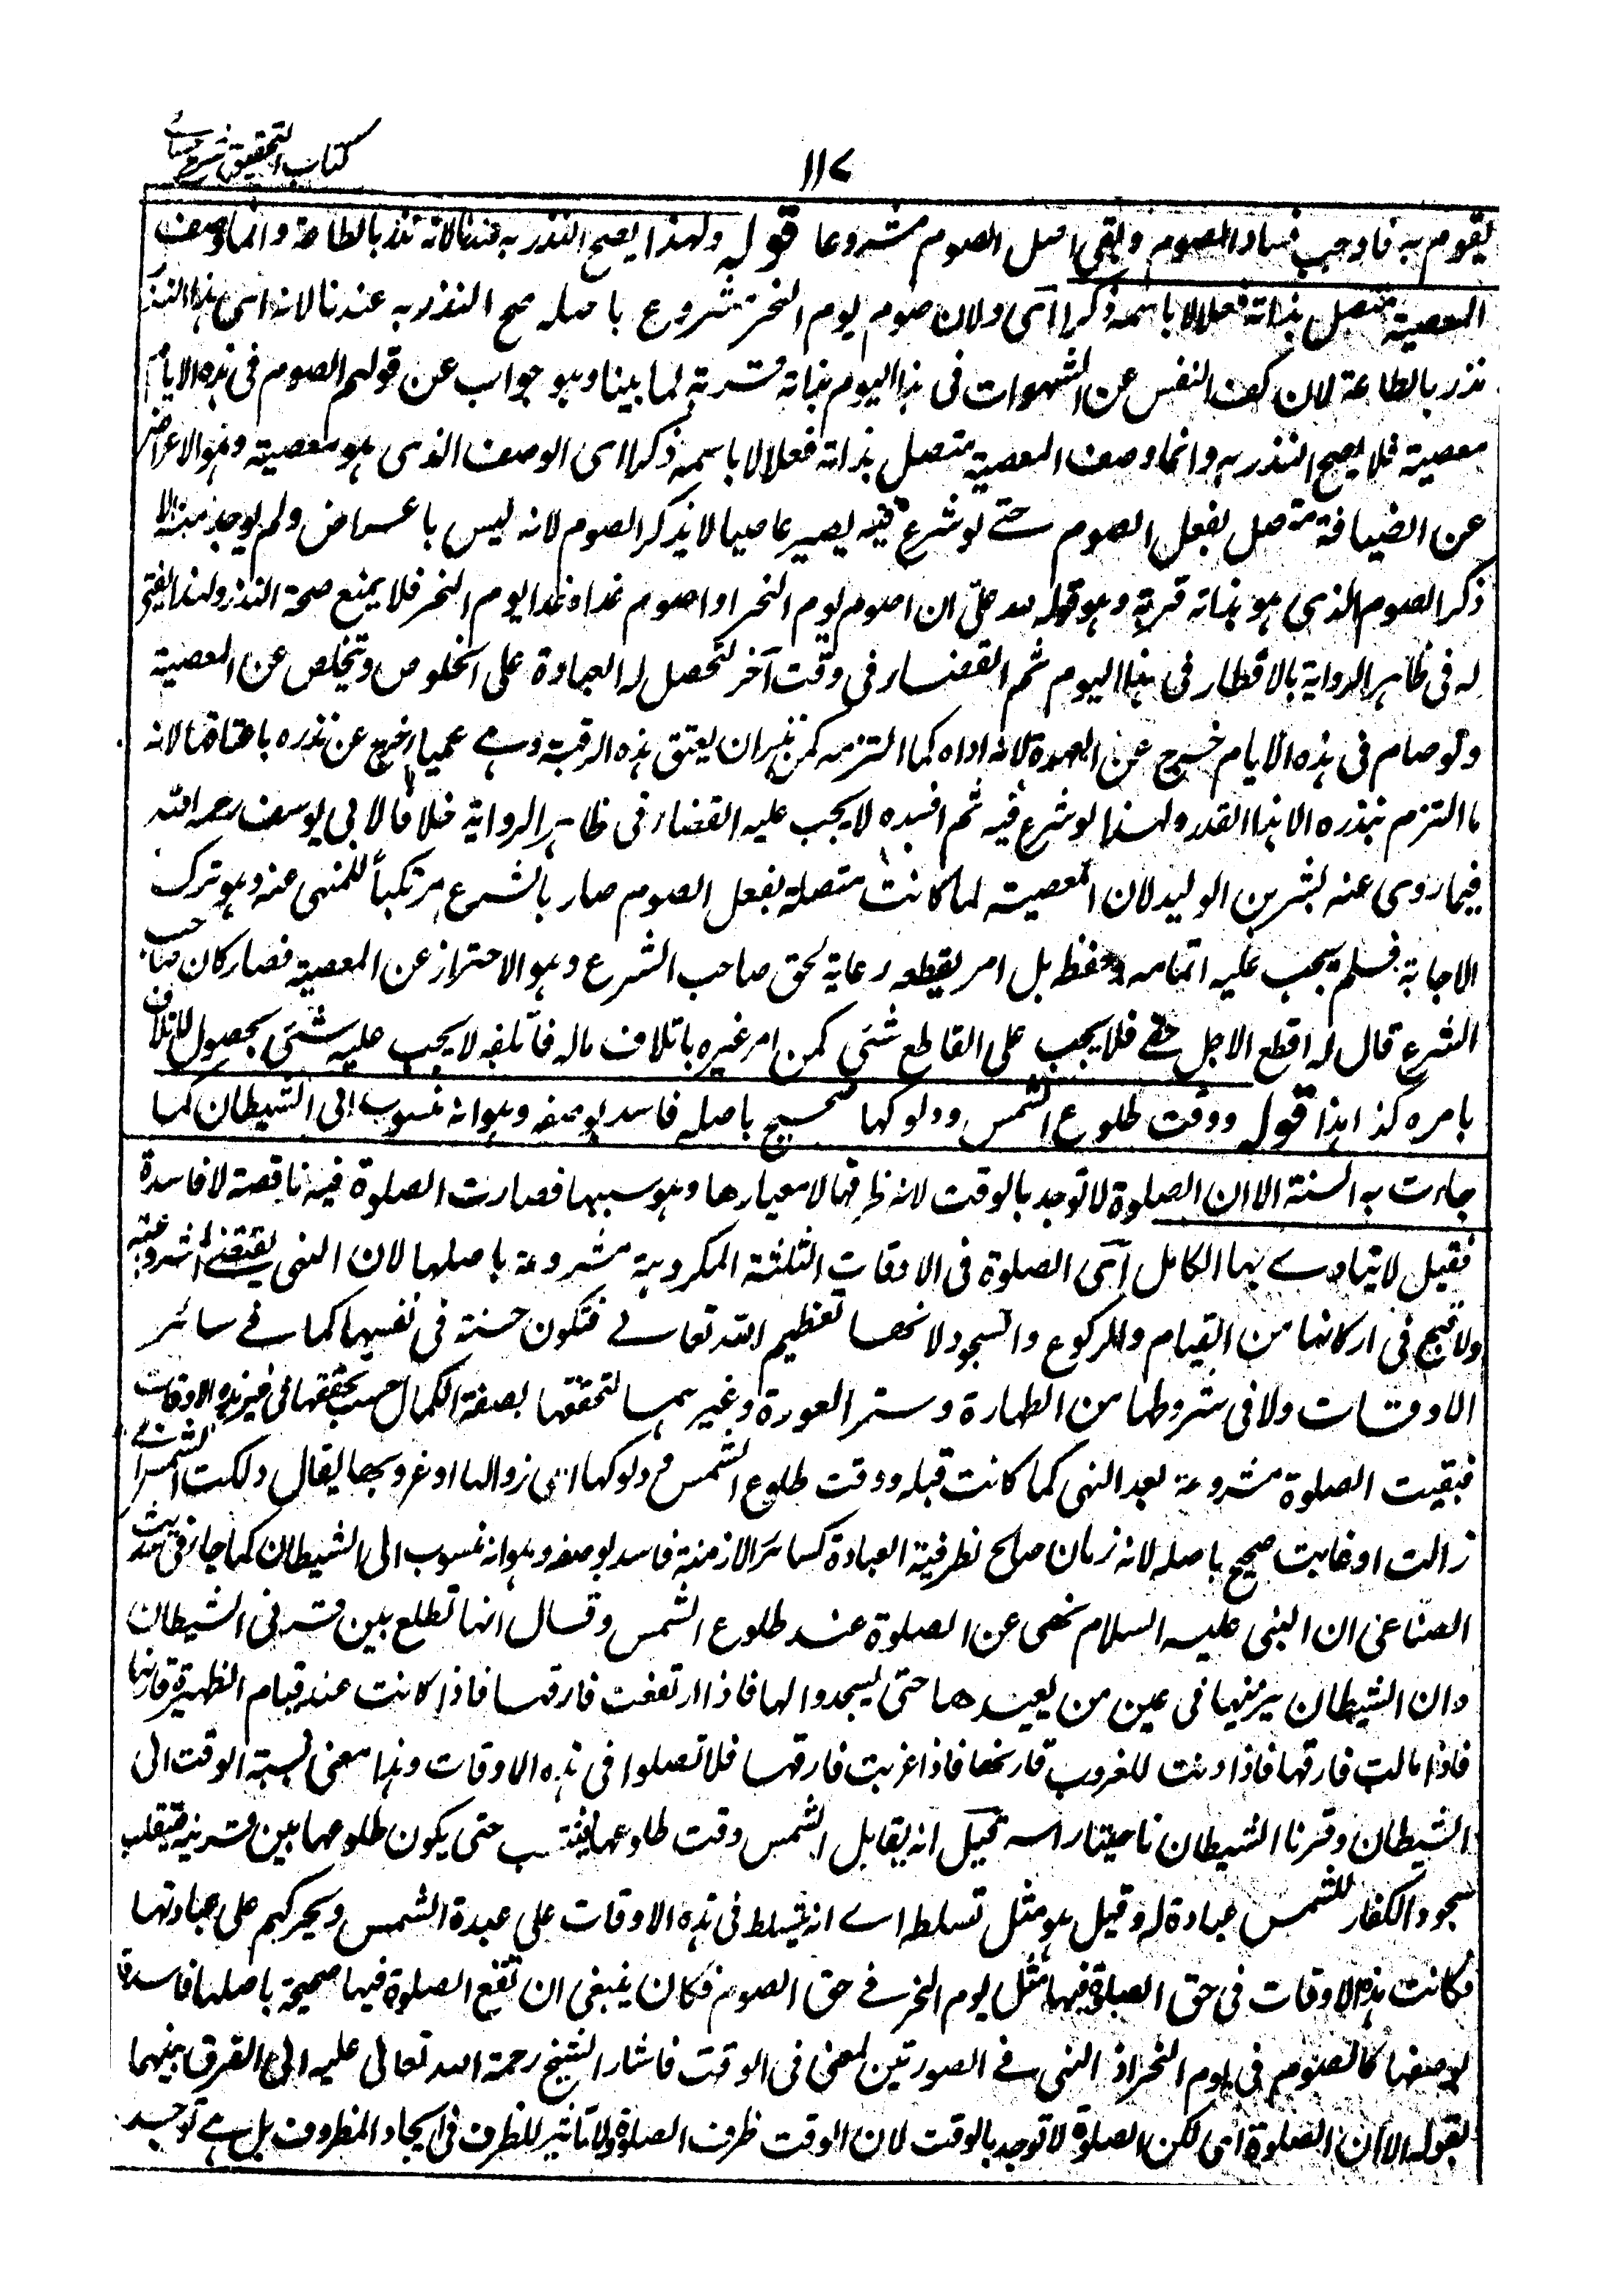 كتاب التحقيق شرح حسامي
١١٧
يقوم به فاوجب فساد الصوم وبقى اصل الصوم مشروعا قوله ولهذا يصح النذر به عندنا لانه نذر بالطاعة وانما وصف
المعصية متصل بذاته فعلا لا باسمه ذكرا اى ولان صوم يوم النحر مشروع باصله صح النذر به عندنا لانه اى هذا النذر
نذر بالطاعة لان كف النفس عن الشهوات فى هذا اليوم بذاته قربة لما بينا وهو جواب عن قولهم الصوم فى هذه الايام
معصية فلا يصح النذر به وانما وصف المعصية متصل بذاته فعلا لا باسمه ذكرا اى الوصف الذى هو معصية وهو الاعراض
عن الضيافة متصل بفعل الصوم حتے لو شرع فيه يصير عاصيا لا بذكر الصوم لانه ليس باعراض ولم يوجد منه الا
ذكر الصوم الذى هو بذاته قربة وهو قوله لله علىّ ان اصوم يوم النحر او اصوم غدا وغدا يوم النحر فلا يمنع صحة النذر ولهذا يفتى
له فى ظاهر الرواية بالافطار فى هذا اليوم ثم القضاء فى وقت آخر لتحصل له العبادة على الخلوص ويتخلص عن المعصية
ولو صام فى هذه الايام خرج عن العهدة لانه اداه كما التزمه كمن نذر ان يعتق هذه الرقبة وهے عمياء خرج عن نذره باعتاقها لانه
ما التزم بنذره الا هذا القدر ولهذا لو شرع فيه ثم افسده لا يجب عليه القضاء فى ظاهر الرواية خلافا لابى يوسف رحمه الله
فيما روى عنه بشر بن الوليد لان المعصية لما كانت متصلة بفعل الصوم صار بالشرع مرتكباً للمنهى عنه وهو ترك
الاجابة فلم يجب عليه اتمامه وحفظه بل امر بقطعه رعاية لحق صاحب الشرع وهو الاحتراز عن المعصية فصار كان صاحب
الشرع قال له اقطع لاجل حقے فلا يجب على القاطع شئى كمن امر غيره باتلاف ماله فاتلفه لا يجب عليه شئى بحصول الاتلاف
بامره كذا هذا قوله ووقت طلوع الشمس ودلوكها صحيح باصله فاسد بوصفه وهو انه منسوب الى الشيطان كما
جاءت به السنة الا ان الصلوة لا توجد بالوقت لانه ظرفها لا معيارها وهو سببها فصارت الصلوة فيه ناقصة لا فاسدة
فقيل لا يتادے بها الكامل اى الصلوة فى الاوقات الثلثة المكروهة مشروعة باصلها لان النهى يقتضى المشروعية
ولا قبح فى اركانها من القيام والركوع والسجود لانها تعظيم الله تعالے فتكون حسنة فى نفسها كما فے سائر
الاوقات ولا فى شروطها من الطهارة وستر العورة وغيرهما لتحققها بصفة الكمال حسب تحققها فى غير هذه الاوقات
فبقيت الصلوة مشروعة بعد النهى كما كانت قبله ووقت طلوع الشمس ودلوكها اى زوالها او غروبها يقال دلكت الشمس اى
زالت او غابت صحيح باصله لانه زمان صالح لظرفية العبادة كسائر الازمنة فاسد بوصفه وهو انه منسوب الى الشيطان كما جاء فى حديث
الصنابحى ان النبى عليه السلام نهى عن الصلوة عند طلوع الشمس وقال انها تطلع بين قرنى الشيطان
وان الشيطان يزينها فى عين من يعبدها حتى يسجدوا لها فاذا ارتفعت فارقها فاذا كانت عند قيام الظهيرة قارنها
فاذا مالت فارقها فاذا دنت للغروب قارنها فاذا غربت فارقها فلا تصلوا فى هذه الاوقات وهذا معنى نسبة الوقت الى
الشيطان وقرنا الشيطان ناحيتا راسه قيل انه يقابل الشمس وقت طلوعها فينتصب حتى يكون طلوعها بين قرنيه فينقلب
سجود الكفار للشمس عبادة له وقيل هو مثل تسلطه اے انه يتسلط فى هذه الاوقات على عبدة الشمس ويحركهم على عبادتها
فكانت هذه الاوقات فى حق الصلوة فيها مثل يوم النحر فے حق الصوم فكان ينبغى ان تقع الصلوة فيها صحيحة باصلها فاسدة
بوصفها كالصوم فى يوم النحر اذ النهى فے الصورتين لمعنى فى الوقت فاشار الشيخ رحمة الله تعالى عليه الى الفرق بينهما
بقوله الا ان الصلوة اى لكن الصلوة لا توجد بالوقت لان الوقت ظرف الصلوة ولا تأثير للظرف فى ايجاد المظروف بل هے توجد